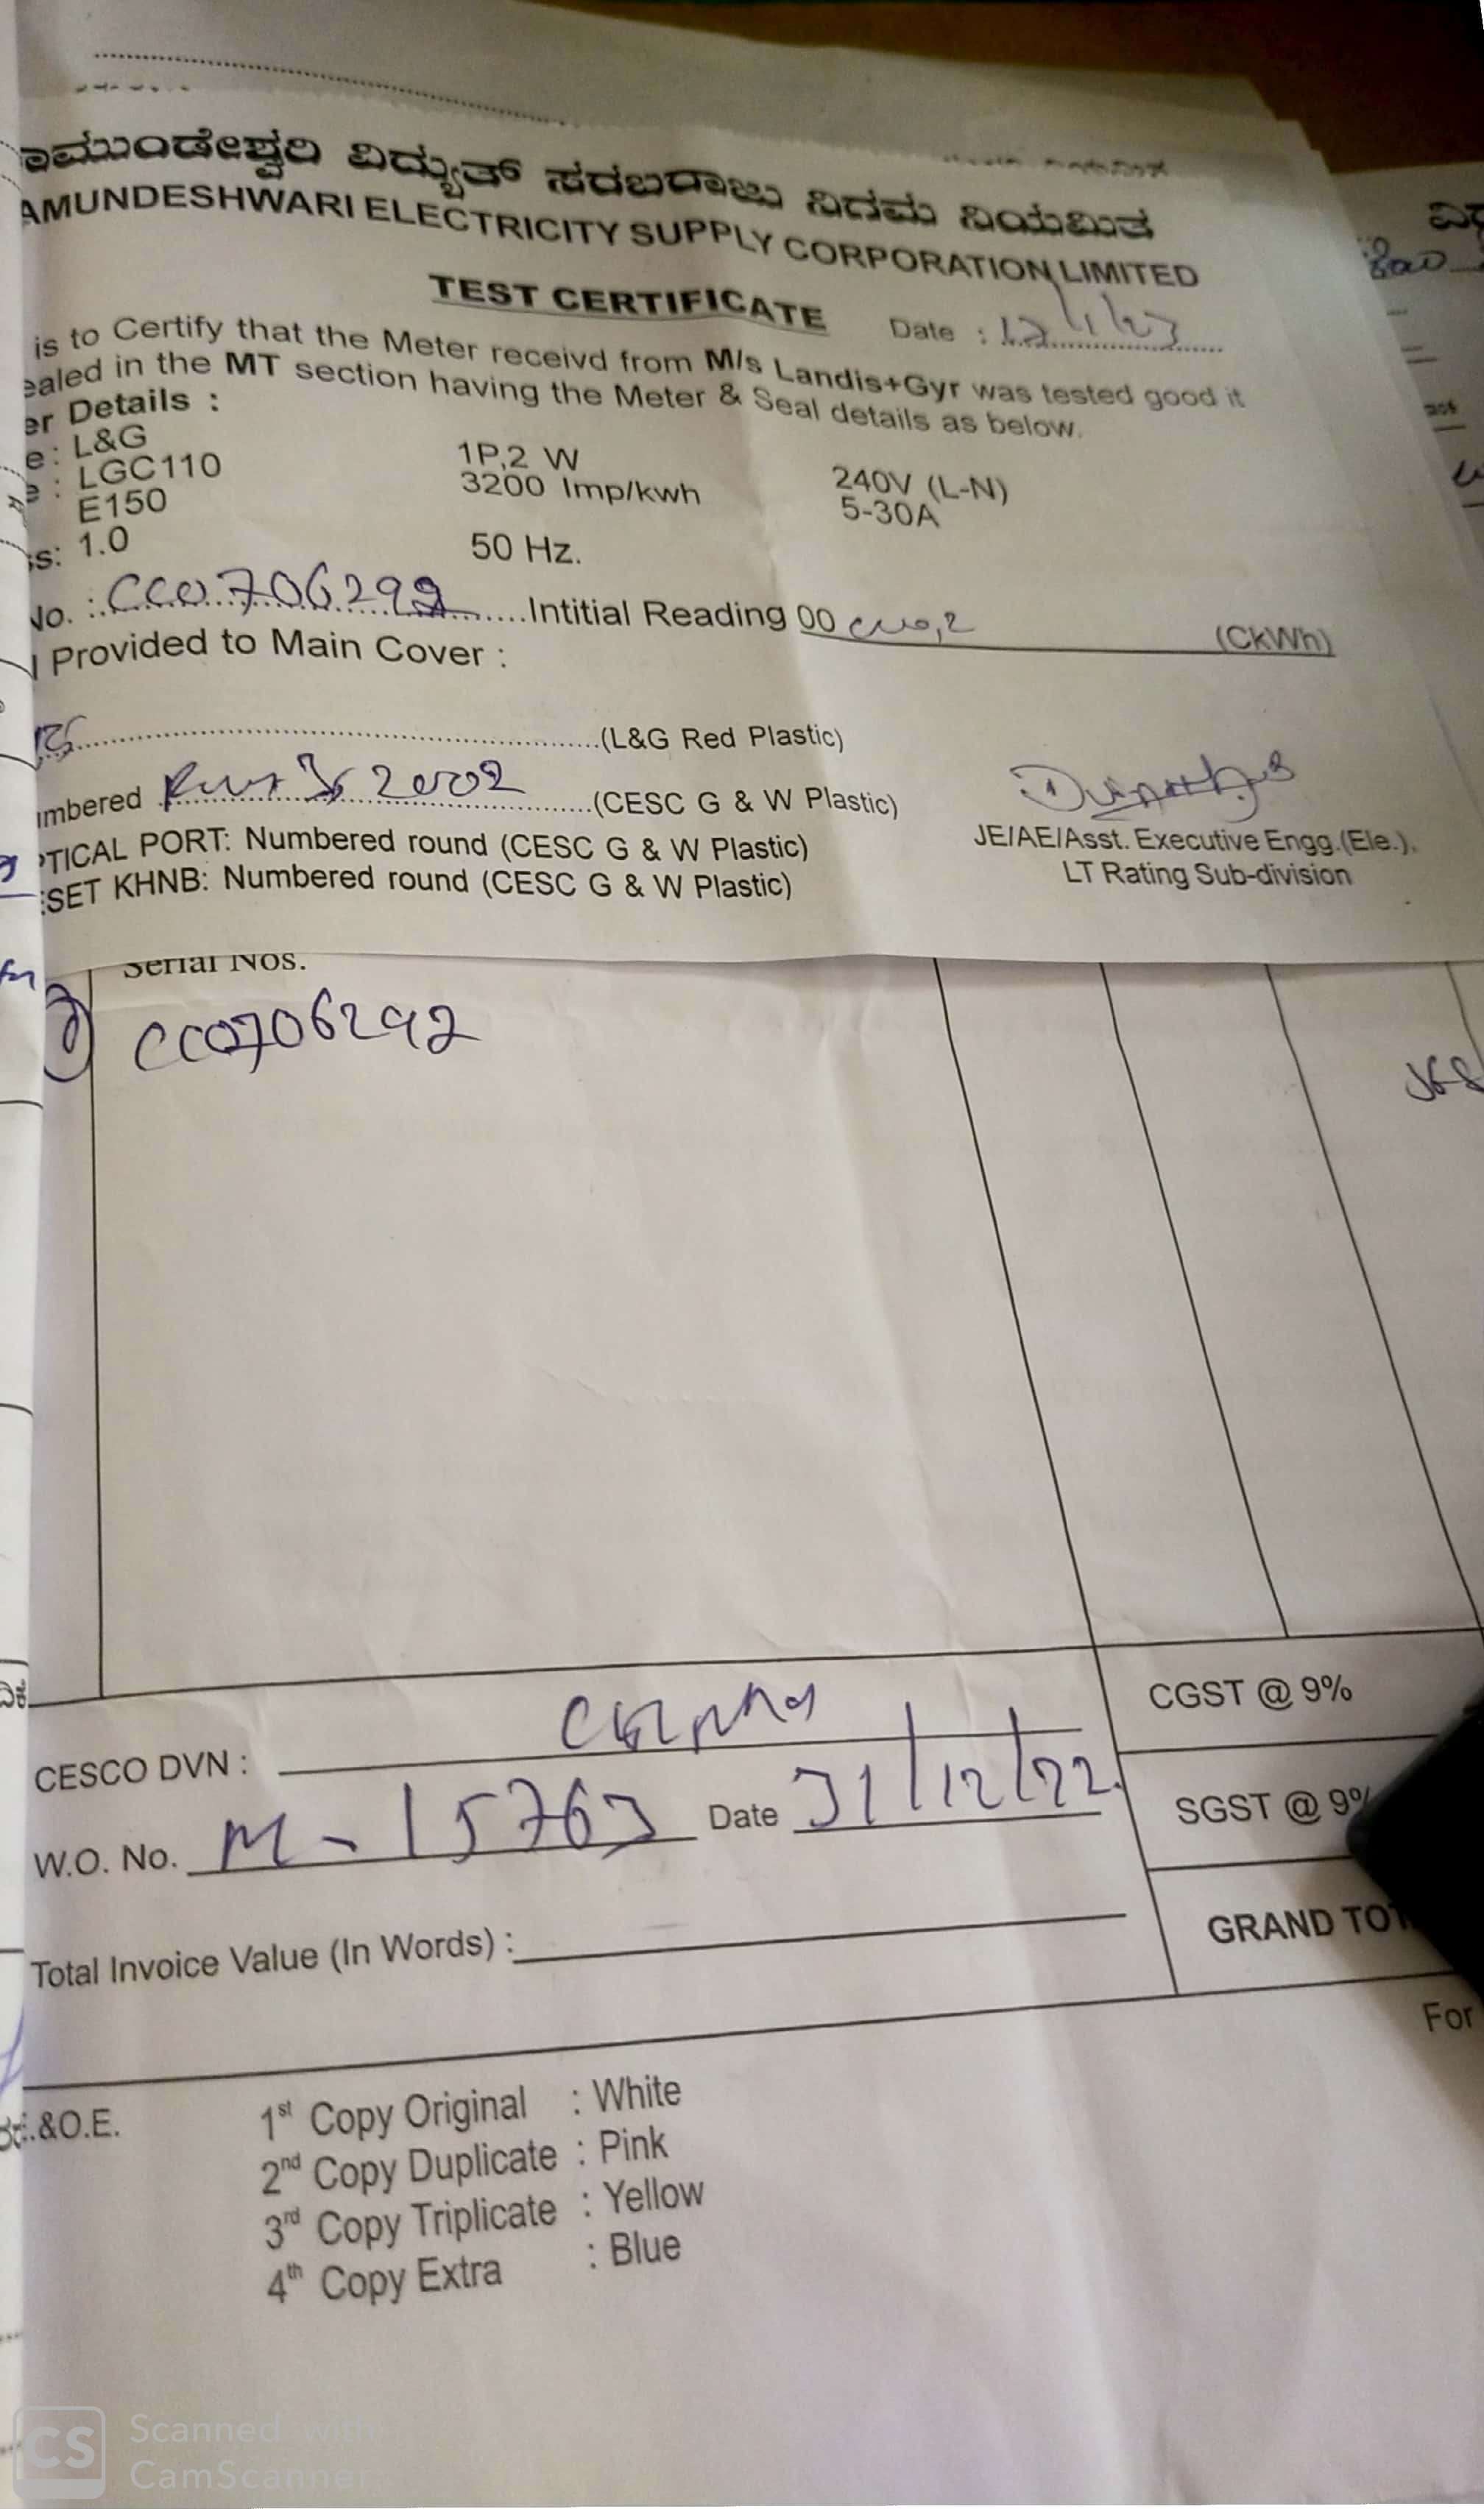 ಾಮುಂಡೇಶ್ವರಿ ವಿದ್ಯುತ್ ಸರಬರಾಜು ನಿಗಮ ನಿಯಮಿತ
AMUNDESHWARI ELECTRICITY SUPPLY CORPORATION LIMITED
TEST CERTIFICATE
Date :
is to Certify that the Meter receivd from M/s Landis+Gyr was tested good it
ealed in the MT section having the Meter & Seal details as below.
er Details :
e : L&G 1P,2 W 240V (L-N)
e : LGC110 3200 Imp/kwh 5-30A
E150
ss: 1.0 50 Hz.
No. : CC0706292 Intitial Reading 00 (CkWh)
Provided to Main Cover :
(L&G Red Plastic)
mbered (CESC G & W Plastic)
PTICAL PORT: Numbered round (CESC G & W Plastic)
JE/AE/Asst. Executive Engg.(Ele.).
ESET KHNB: Numbered round (CESC G & W Plastic)
LT Rating Sub-division
Serial Nos.
CC0706292
CGST @ 9%
CESCO DVN :
SGST @ 9%
W.O. No. M-15763 Date 31/12/22.
GRAND TOT
Total Invoice Value (In Words) :
For
.&O.E.
1st Copy Original : White
2nd Copy Duplicate : Pink
3rd Copy Triplicate : Yellow
4th Copy Extra : Blue
CS Scanned with
CamScanner